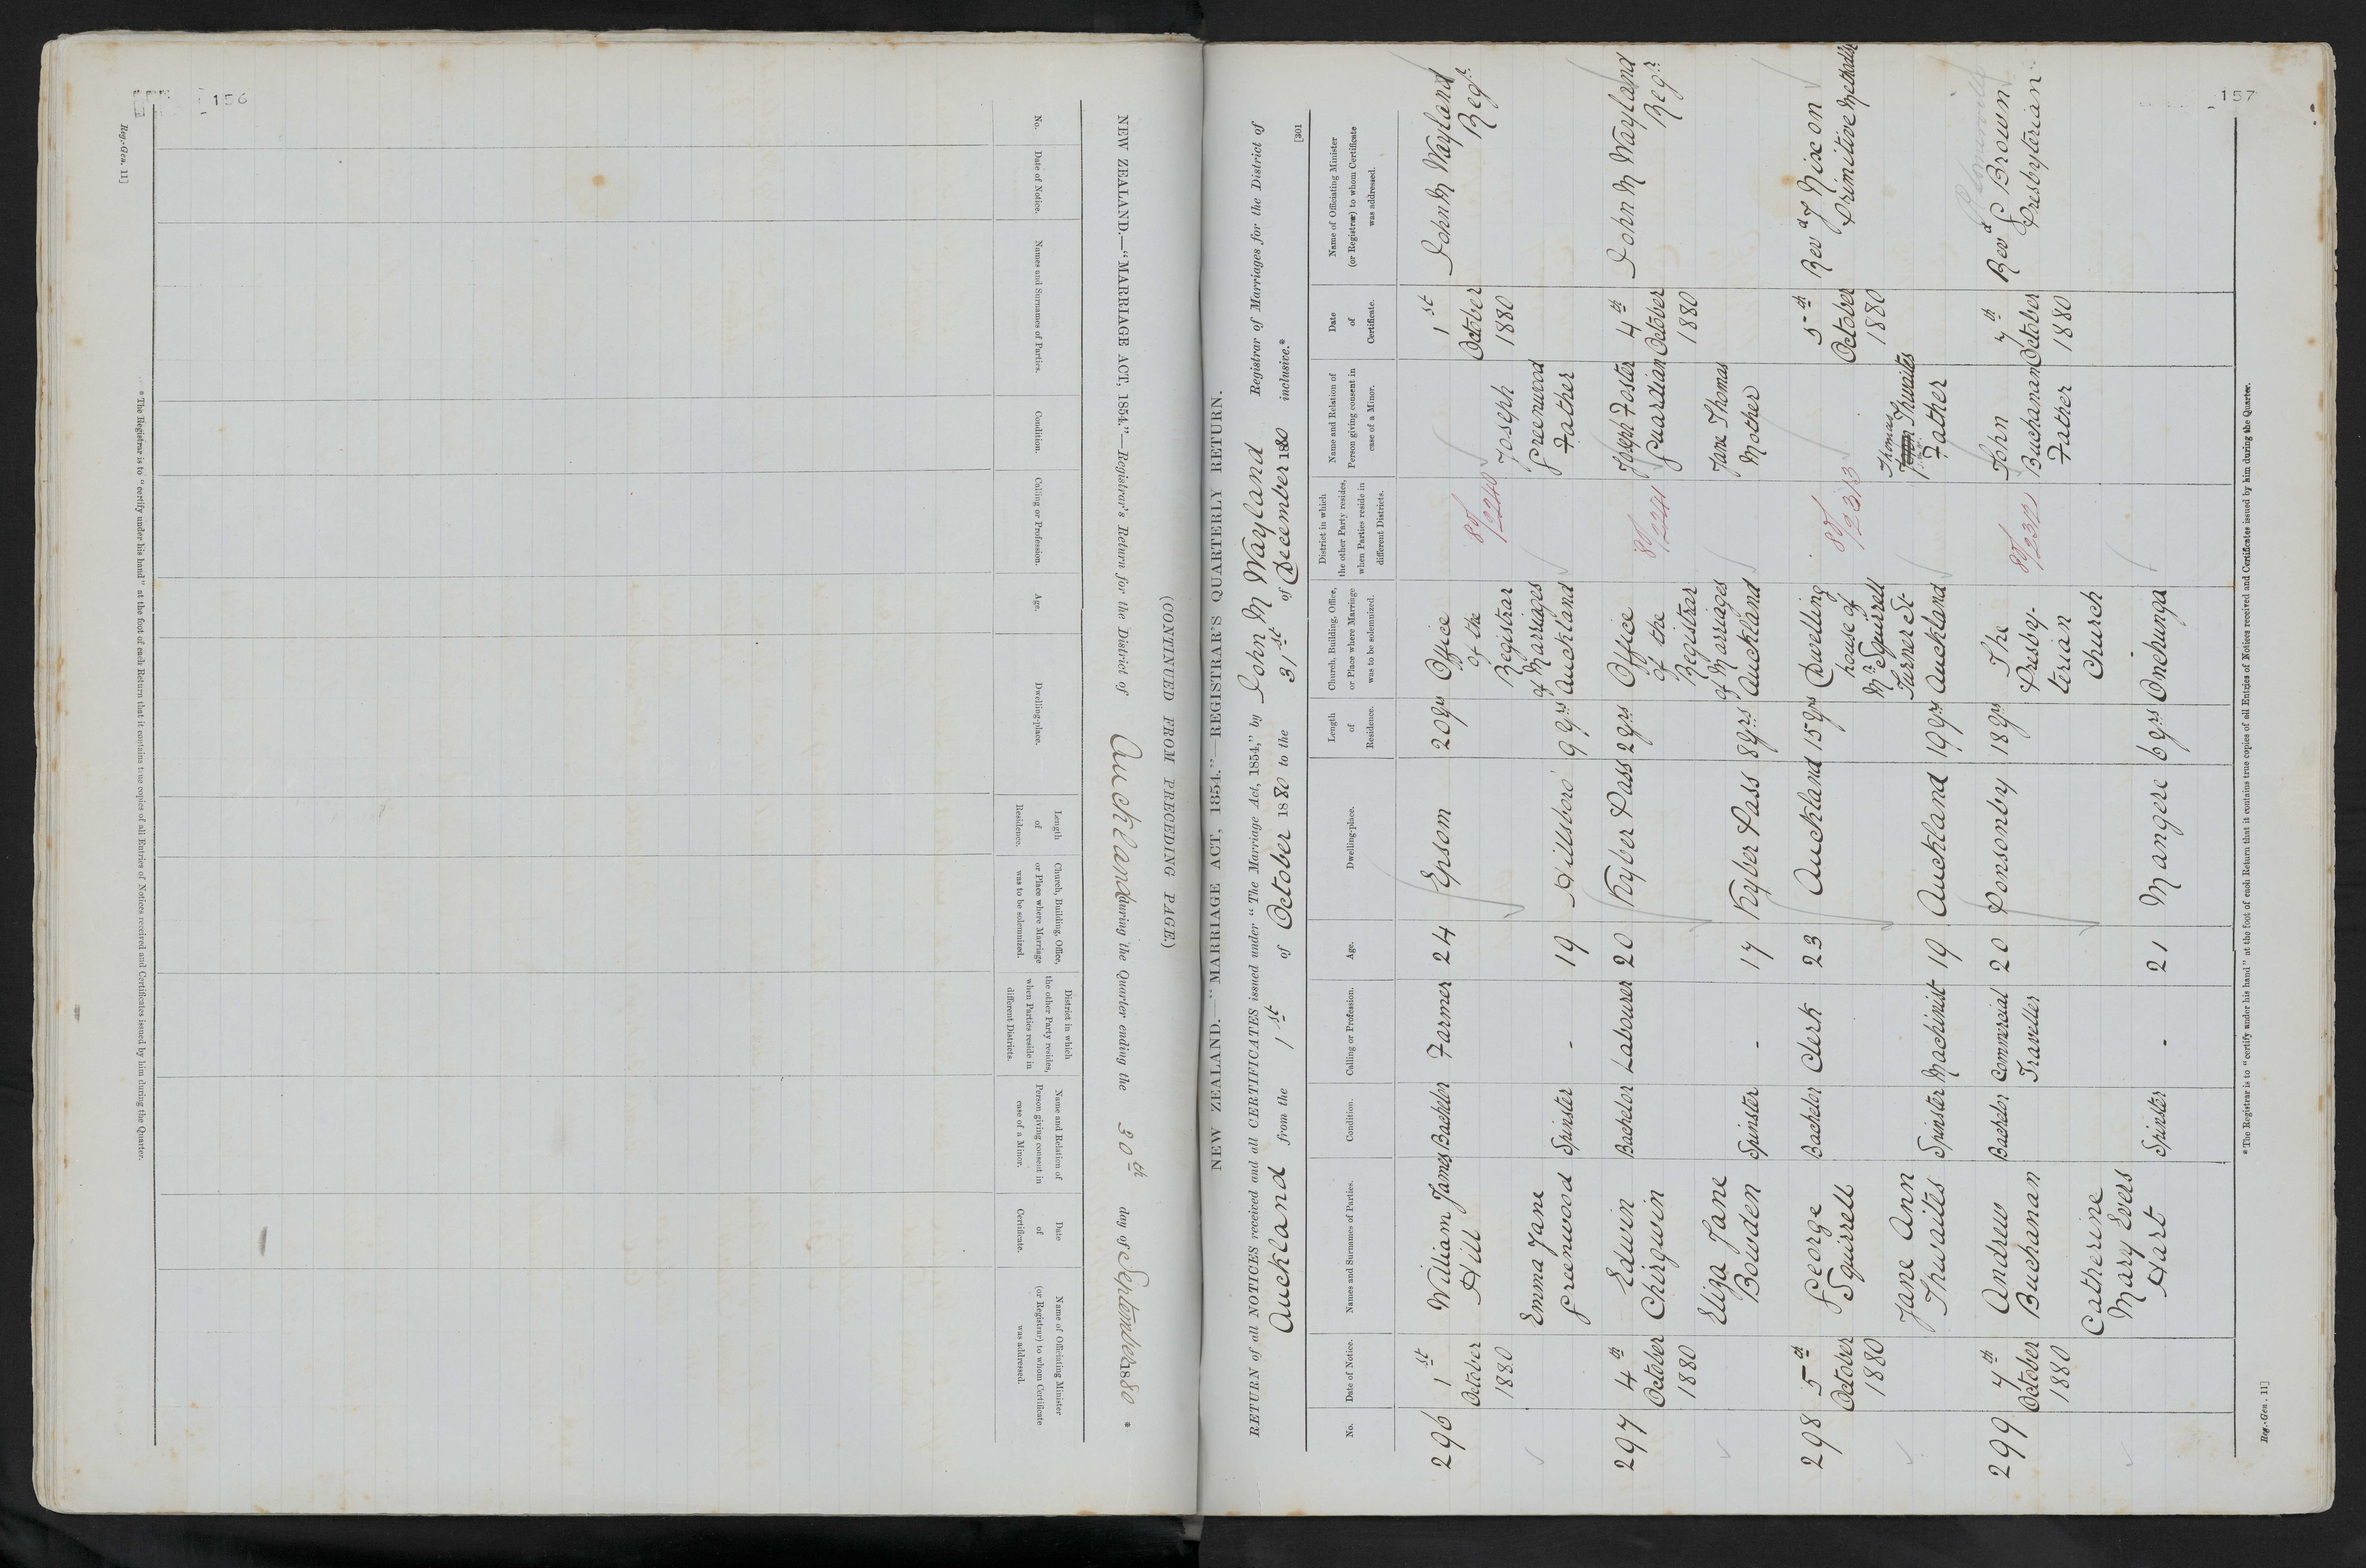 156
Reg.-Gen. 11]
(CONTINUED FROM PRECEDING PAGE.)
NEW ZEALAND.—"MARRIAGE ACT, 1854."—Registrar's Return for the District of Auckland during the Quarter ending the 30th day of September 1880 *
No.
Date of Notice.
Names and Surnames of Parties.
Condition.
Calling or Profession.
Age.
Dwelling-place.
Length
of
Residence.
Church, Building, Office,
or Place where Marriage
was to be solemnized.
District in which
the other Party resides,
when Parties reside in
different Districts.
Name and Relation of
Person giving consent in
case of a Minor.
Date
of
Certificate.
Name of Officiating Minister
(or Registrar) to whom Certificate
was addressed.
* The Registrar is to "certify under his hand" at the foot of each Return that it contains true copies of all Entries of Notices received and Certificates issued by him during the Quarter.
157
NEW ZEALAND.—"MARRIAGE ACT, 1854."—REGISTRAR'S QUARTERLY RETURN.
RETURN of all NOTICES received and all CERTIFICATES issued under "The Marriage Act, 1854," by John M Wayland Registrar of Marriages for the District of
Auckland from the 1st of October 1880 to the 31st of December 1880 inclusive.*
[301
No.
Date of Notice.
Names and Surnames of Parties.
Condition.
Calling or Profession.
Age.
Dwelling-place.
Length
of
Residence.
Church, Building, Office,
or Place where Marriage
was to be solemnized.
District in which
the other Party resides,
when Parties reside in
different Districts.
Name and Relation of
Person giving consent in
case of a Minor.
Date
of
Certificate.
Name of Officiating Minister
(or Registrar) to whom Certificate
was addressed.
296
1st
October
1880
William James
Hill
Bachelor
Farmer
24
Epsom
20 yrs
Office
of the
Registrar
of Marriages
Auckland
80/2240
1st
October
1880
John M Wayland
Regr
Emma Jane
Greenwood
Spinster
-
19
Hillsboro'
9 yrs
Joseph
Greenwood
Father
297
4th
October
1880
Edwin
Chirgwin
Bachelor
Labourer
20
Kyber Pass
2 yrs
Office
of the
Registrar
of Marriages
Auckland
80/2241
Joseph Foster
Guardian
4th
October
1880
John M Wayland
Regr
Eliza Jane
Bowden
Spinster
-
17
Kyber Pass
8 yrs
Jane Thomas
Mother
298
5th
October
1880
George
Squirrell
Bachelor
Clerk
23
Auckland
15 yrs
Dwelling
house of
Mr Squirrell
Turner St
Auckland
80/2313
5th
October
1880
Revd J Nixon
Primitive Methodist
Jane Ann
Thwaites
Spinster
Machinist
19
Auckland
19 yrs
Thomas
Thwaites
Father
299
7th
October
1880
Andrew
Buchanan
Bachelor
Commercial
Traveller
20
Ponsonby
18 yrs
The
Presby-
terian
Church
Onehunga
80/2312
John
Buchanan
Father
7th
October
1880
Revd G Brown
Presbyterian
Catherine
Mary Evers
Hart
Spinster
-
21
Mangere
6 yrs
* The Registrar is to "certify under his hand" at the foot of each Return that it contains true copies of all Entries of Notices received and Certificates issued by him during the Quarter.
Reg.-Gen. 11]